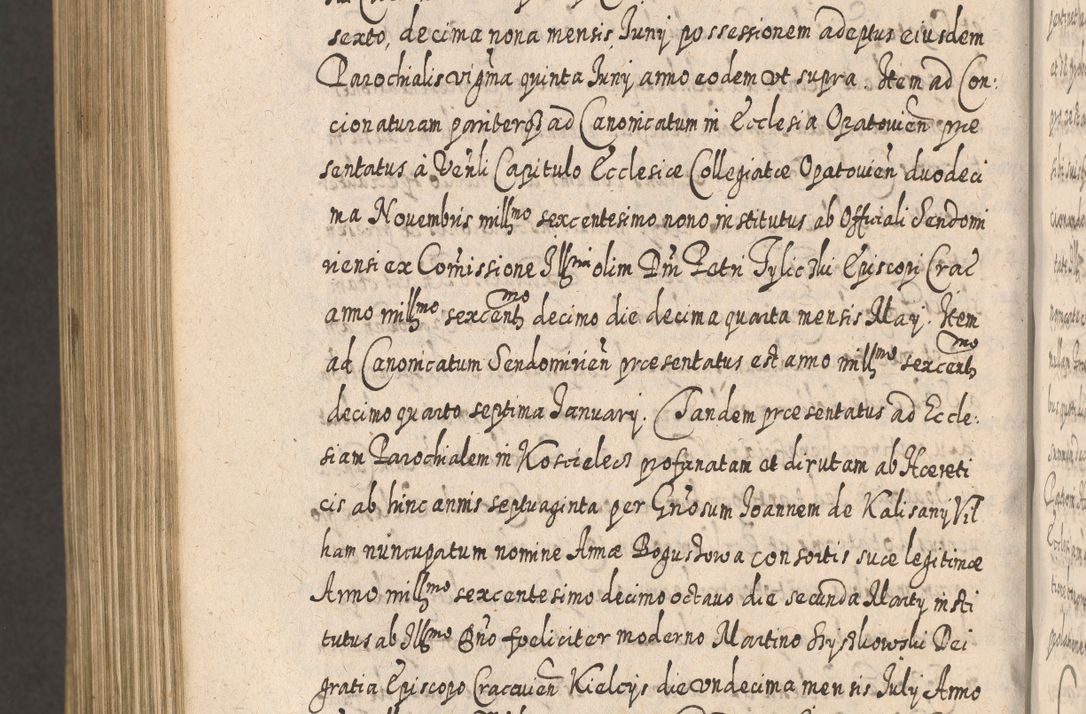 sexto, decima nona mensis Iunÿ possessionem adeptus eiusdem
Parochialis vigīma quinta Iunÿ anno eodem vt supra. Item ad Con:
cionaturam pariterq3 ad Canonicatum in Ecclesia Opatouien̄ præ
sentatus à Ven̄li Capitulo Ecclesiæ Collegiatæ Opatouien̄ duodeci
ma Nouembris mill̄mo sexcentesimo nono institutus ab Officiali Sendomi
riensi ex Com̄issione Ill̄mi olim Dn̄i Petri Tylic3ki Episcopi Crac̄
anno mill̄mo sexcent̄mo decimo die decima quarta mensis Maÿ. Item
ad Canonicatum Sendomirien̄ præsentatus est anno mill̄mo sexcent̄mo
decimo quarto septima Ianuarÿ. Tandem præsentatus ad Eccle:
siam Parochialem in Koscielecz profanatam et dirutam ab Hæreti
cis ab hinc annis septuaginta per Gn̄osum Ioannem de Kalisany Vil
ham nuncupatum nomine Annæ Bogustowa consortis suæ legitimæ
Anno mill̄mo sexcentesimo decimo octauo die secunda Martÿ insti
tutus ab Ill̄mo Dn̄o fœliciter moderno Martino Szyszkowski Dei
gratia Episcopo Cracouien̄ Kielcÿs die vndecima mensis Iulÿ Anno